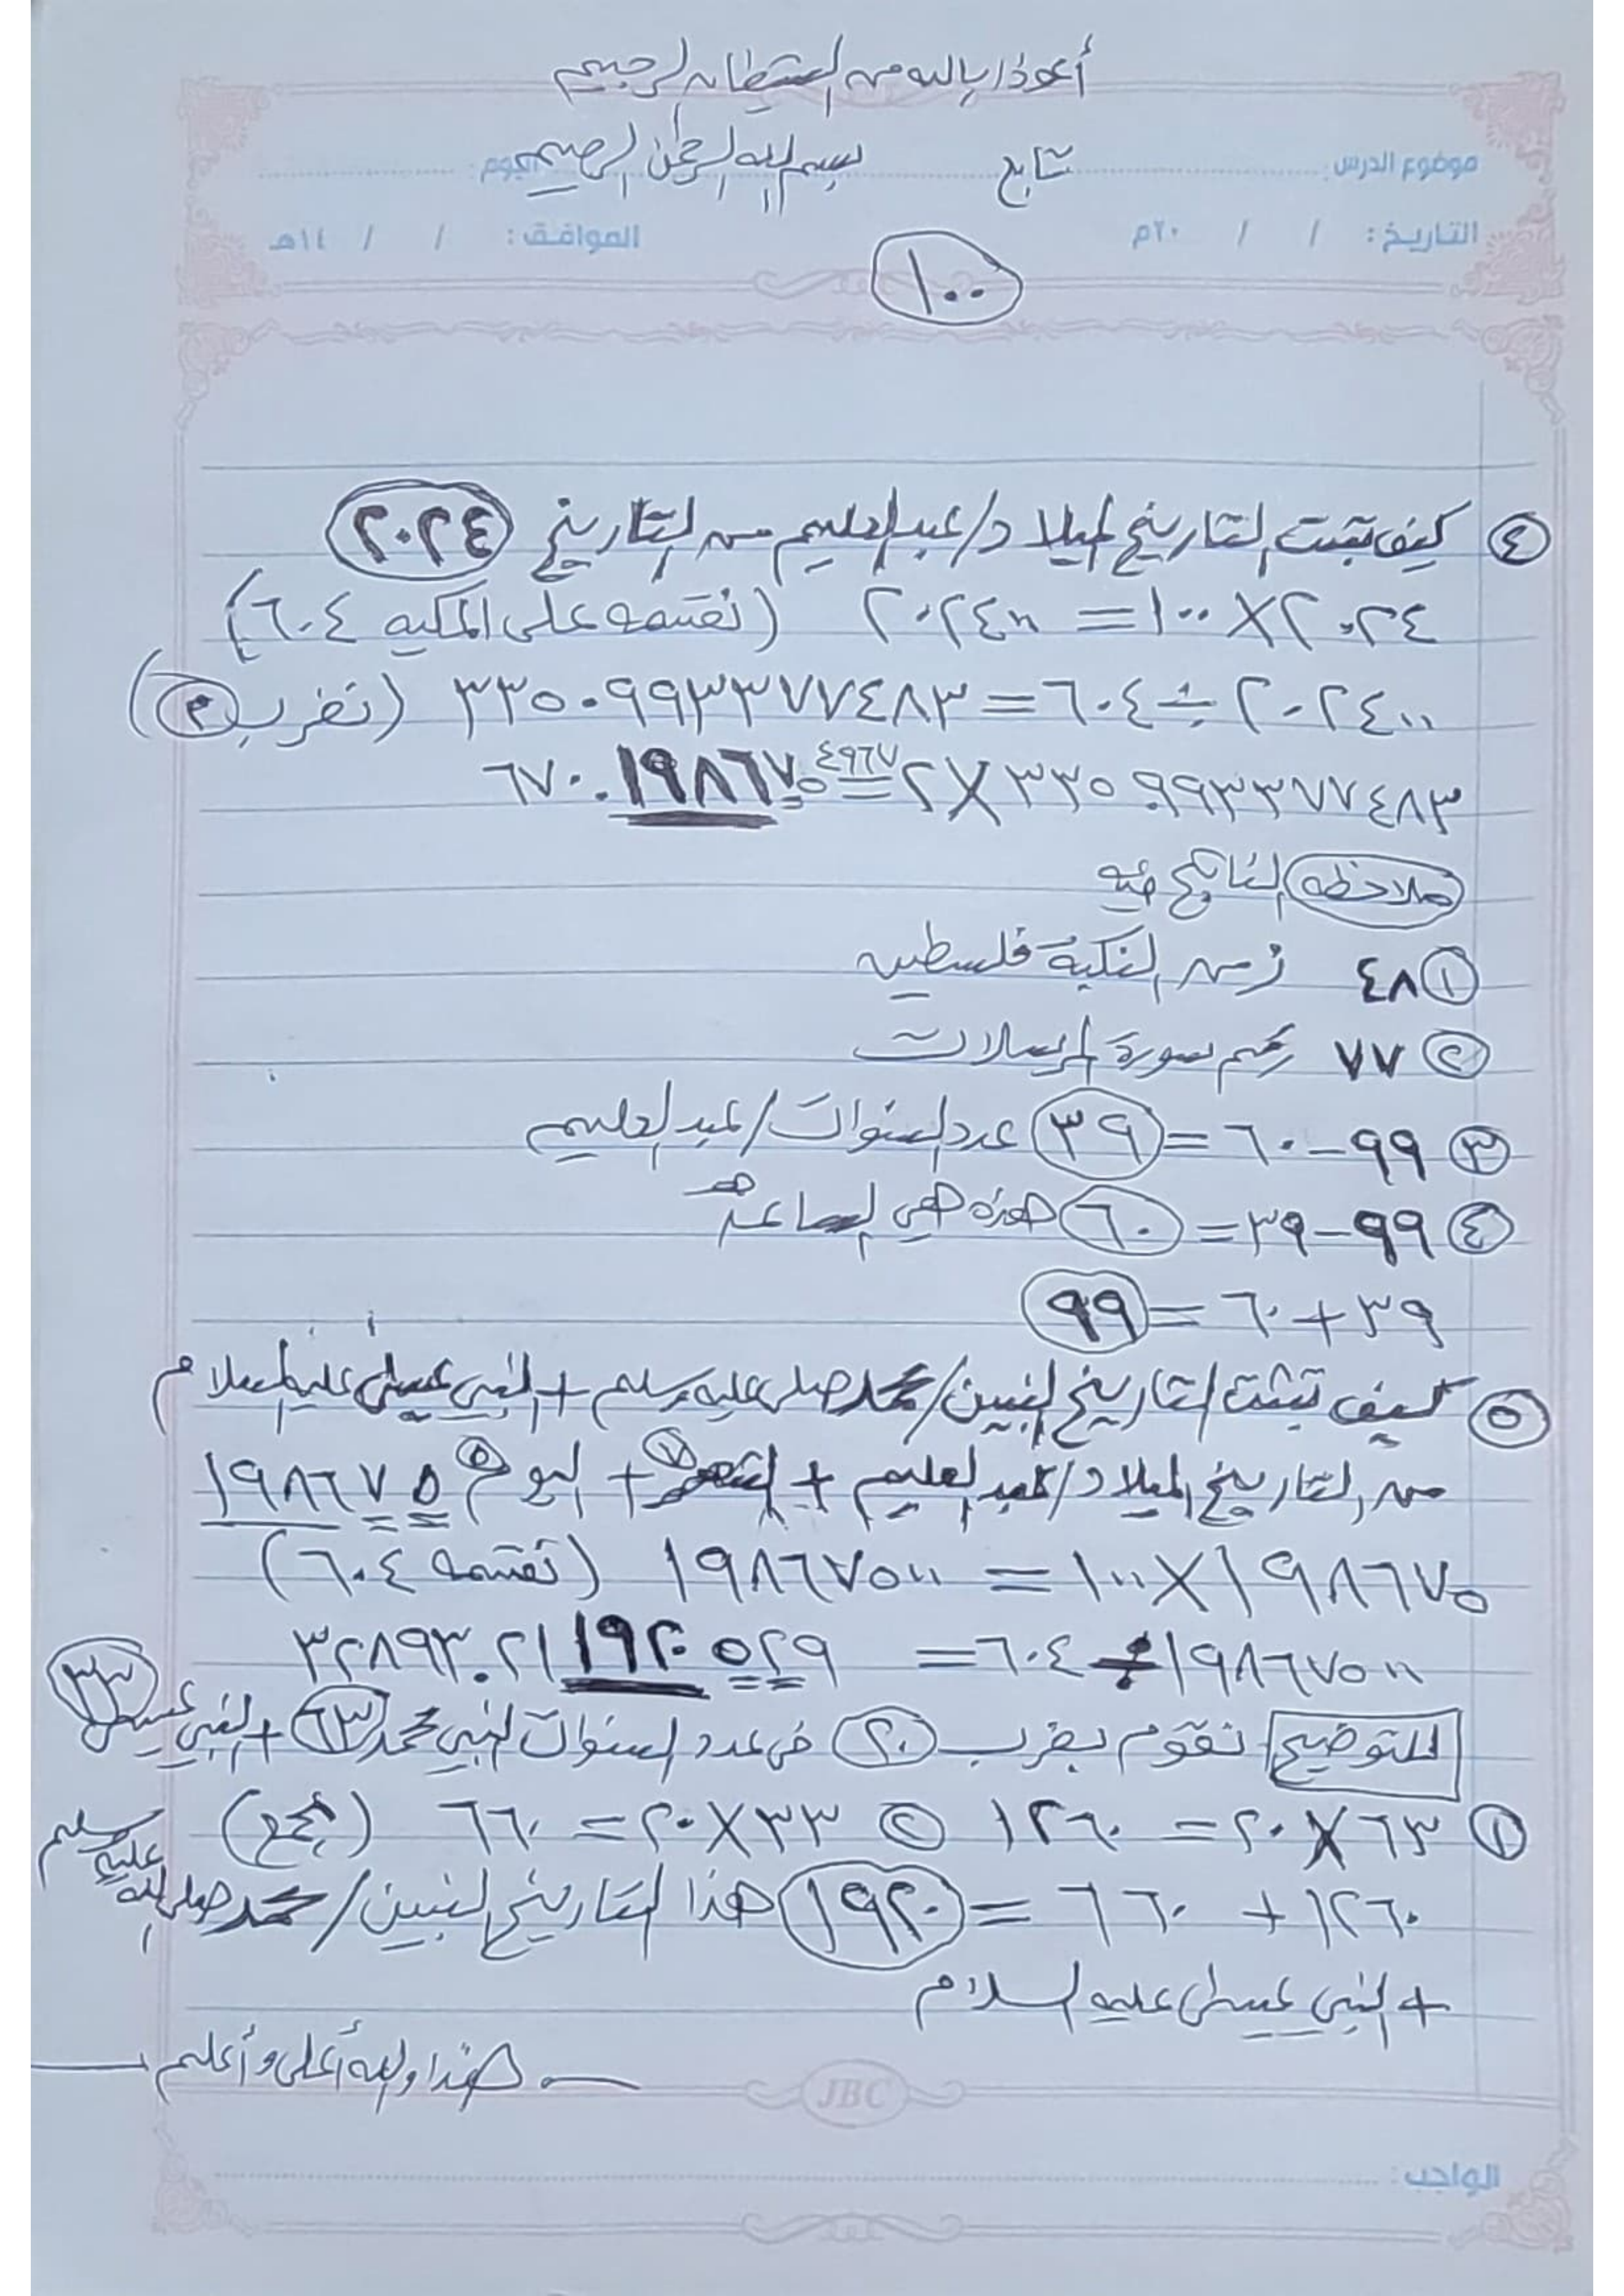 أعوذ بالله من الشيطان الرجيم
موضوع الدرس: تابع بسم الله الرحمن الرحيم اليوم:
التاريخ: / / ٢٠م الموافق: / / ١٤هـ
١٠٠
٤ كيف تثبت التاريخ الميلاد/عبدالعليم من التاريخ ٢٠٢٤
٢٠٢٤ X ١٠٠ = ٢٠٢٤٠٠ (نقسمه على المكيه ٦٠٤)
٢٠٢٤٠٠ ÷ ٦٠٤ = ٣٣٥.٠٩٩٣٣٧٧٤٨٣ (نضرب ٢)
٣٣٥.٠٩٩٣٣٧٧٤٨٣ X ٢ = ٦٧٠.١٩٨٦٧٥٤٩٦٧
ملاحظه الناتج فيه
١ ٤٨ زمن النكبة فلسطين
٢ ٧٧ رقم سورة المرسلات
٣ ٩٩ - ٦٠ = ٣٩ عدد السنوات/عبدالعليم
٤ ٩٩ - ٣٩ = ٦٠ هذه هي الساعة
٣٩ + ٦٠ = ٩٩
٥ كيف تثبت التاريخ النبين/محمد صلى عليه وسلم + النبي عيسى عليه السلام
من التاريخ الميلاد/عبدالعليم + الشهر ٧ + اليوم ٥ ١٩٨٦٧٥
١٩٨٦٧٥ X ١٠٠ = ١٩٨٦٧٥٠٠ (نقسمه ٦٠٤)
١٩٨٦٧٥٠٠ ÷ ٦٠٤ = ٣٢٨٩٣.٢١١٩٢٠٥٢٩
للتوضيح نقوم بضرب ٢٠ في عدد السنوات النبي محمد ٦٣ + النبي عيسى ٣٣
١ ٦٣ X ٢٠ = ١٢٦٠ ٢ ٣٣ X ٢٠ = ٦٦٠ (نجمع)
١٢٦٠ + ٦٦٠ = ١٩٢٠ هذا التاريخ النبين/محمد صلى الله عليه وسلم
+ النبي عيسى عليه السلام
هذا والله أعلى وأعلم
JBC
الواجب: